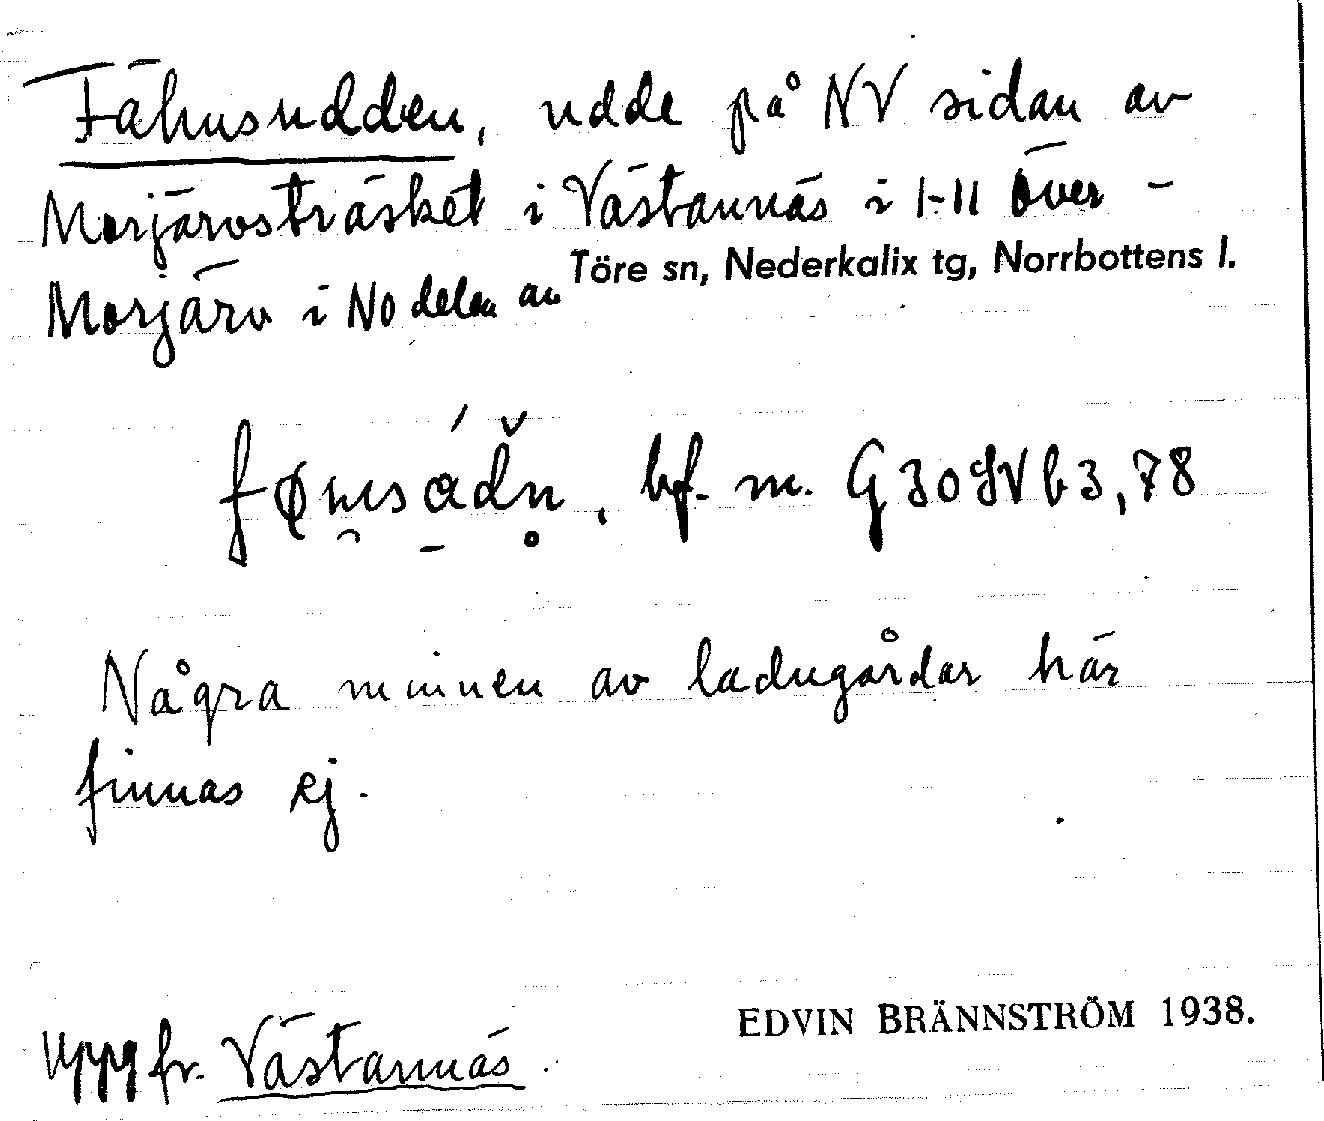 Fähusudden, udde på NV sidan av
Morjärvsträsket i Västannäs i 1-11 Över-
Morjärv i NO delen av Töre sn, Nederkalix tg, Norrbottens l.
bf. m. G 30 SV b 3, 78
Några minnen av ladugårdar här
finnas ej.
Uppg fr. Västannäs.
EDVIN BRÄNNSTRÖM 1938.